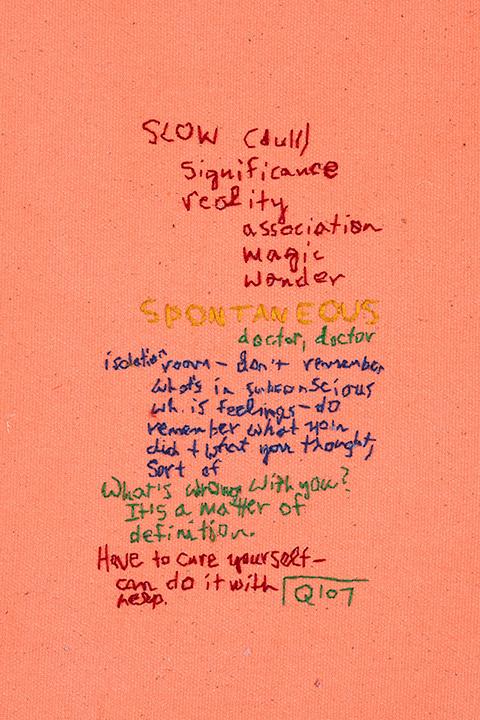 SLOW (dull)
significance
reality
association
magic
wonder
SPONTANEOUS
doctor, doctor
isolation room - don't remember
what's in subconscious
wh. is feelings - do
remember what you
did + what you thought,
Sort of
What's wrong with you?
It's a matter of
definition.
Have to cure yourself -
can do it with
help.
Q107